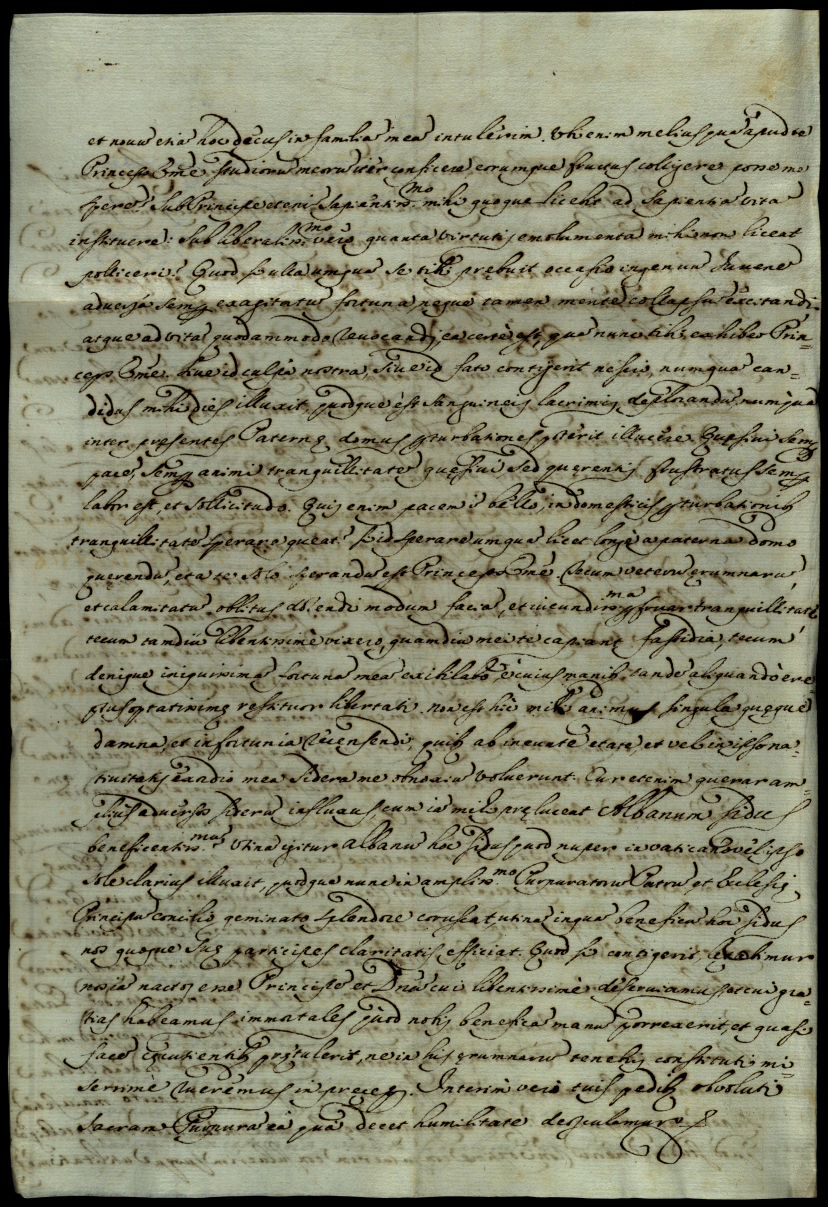 et novũ etiã hoc decus in familiã meã intulerim. Ubi enim melius quã apud te
Princeps Eme studiorũ meorũ iter conficere, eorumque fructus coligere posse me
sperẽ? Sub Principe etenĩ sapientiss.mo mihi quoque licebit ad sapientiã vitã
instituere: sub liberaliss.mo verò quanta virtutis emolumenta mihi non liceat
polliceri? Quod si ulla umquã se tibi prębuit occasio ingenuũ Iuvenẽ
adversa semp exagitatũ fortuna, neque tamen mente collapsũ excitandi
atque ad vitã quodammodo revocandi, ea certè est, quã nunc tibi exhibeo Prin=
ceps Eme. Sive id culpa nostra, sive id fato contigerit nescio, numquã can=
didus mihi dies illuxit, quodque est sanguineis lacrimis deplorandũ, numquã
inter pręsentes Paternę domus pturbationes poterit illucere. Quęsivi semp
pacẽ, semp animi tranquillitatẽ quęsivi, sed quęrentis frustratus semp
labor est, et sollicitudo. Quis enim pacem ĩ bello, in domesticis pturbationib
tranquillitatẽ sperare queat? Si id sperare umquã licet longè a paterna domo
quęrendũ, et a te solo sperandũ est Princeps Eme. Tecum veterũ ęrumnarũ,
et calamitatũ oblitus dolendi modum faciã, et iucundiss.ma pfruar tranquillitate
tecum tamdiu libentissimè vixero, quamdiu mei te capiant fastidia, tecum
denique iniquissimã fortunã meã exibilabo, è cuius manib. tandẽ aliquandò ere=
ptus optatissimę restituor libertati. non est hic mihi animus singula quęque
damna, et infortunia recensendi, quib ab ineunte ętate, et vel in ipso na=
tivitatis exordio mea sidera me obnoxiũ voluerunt. Cur etenim querar am=
plius adversos siderũ influxus, cum iã mihi pręluceat Albanum sidus
beneficentiss.mum? Utinã igitur Albanũ hoc sidus quod nuper in vaticano vel ipso
sole clarius illuxit, quodque nunc in ampliss.mo Purpuratorũ Patrũ et Eclesię
Principũ concilio geminato splendore coruscat, utinã inquã beneficũ hoc sidus
nos quoque suę participes claritatis efficiat. Quod si contigerit, lętabimur
nos iã nactos esse Principẽ et Dnũ cui libentissimè deserviamus, et cui gra=
tias habeamus immortales quòd nobis beneficã manũ porrexerit, et quasi
facẽ errantib prętulerit, ne in his ęrumnarũ tenebris constituti mi=
serrimè rueremus in pręceps. Interim verò tuis pedib obvoluti
sacram Purpurã eà quà decet humilitate deosculamur.